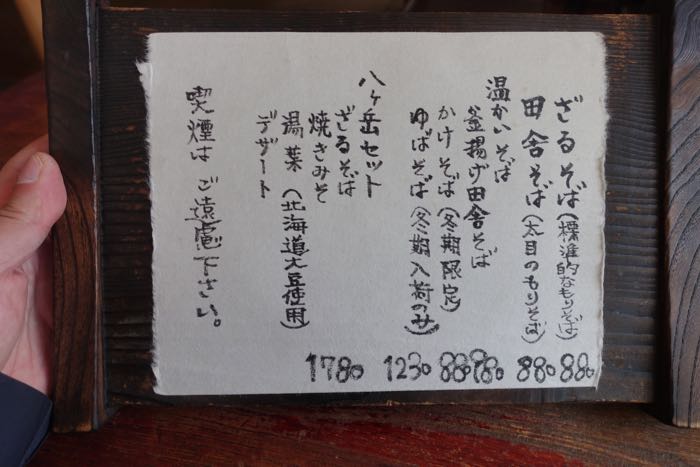 ざるそば(標準的なもりそば) 880
田舎そば(太目のもりそば) 880
温かいそば
釜揚げ田舎そば 980
かけそば(冬期限定) 880
ゆばそば(冬期入荷のみ) 1230
八ヶ岳セット
ざるそば
焼きみそ
湯葉(北海道大豆使用) 1780
デザート
喫煙はご遠慮下さい。